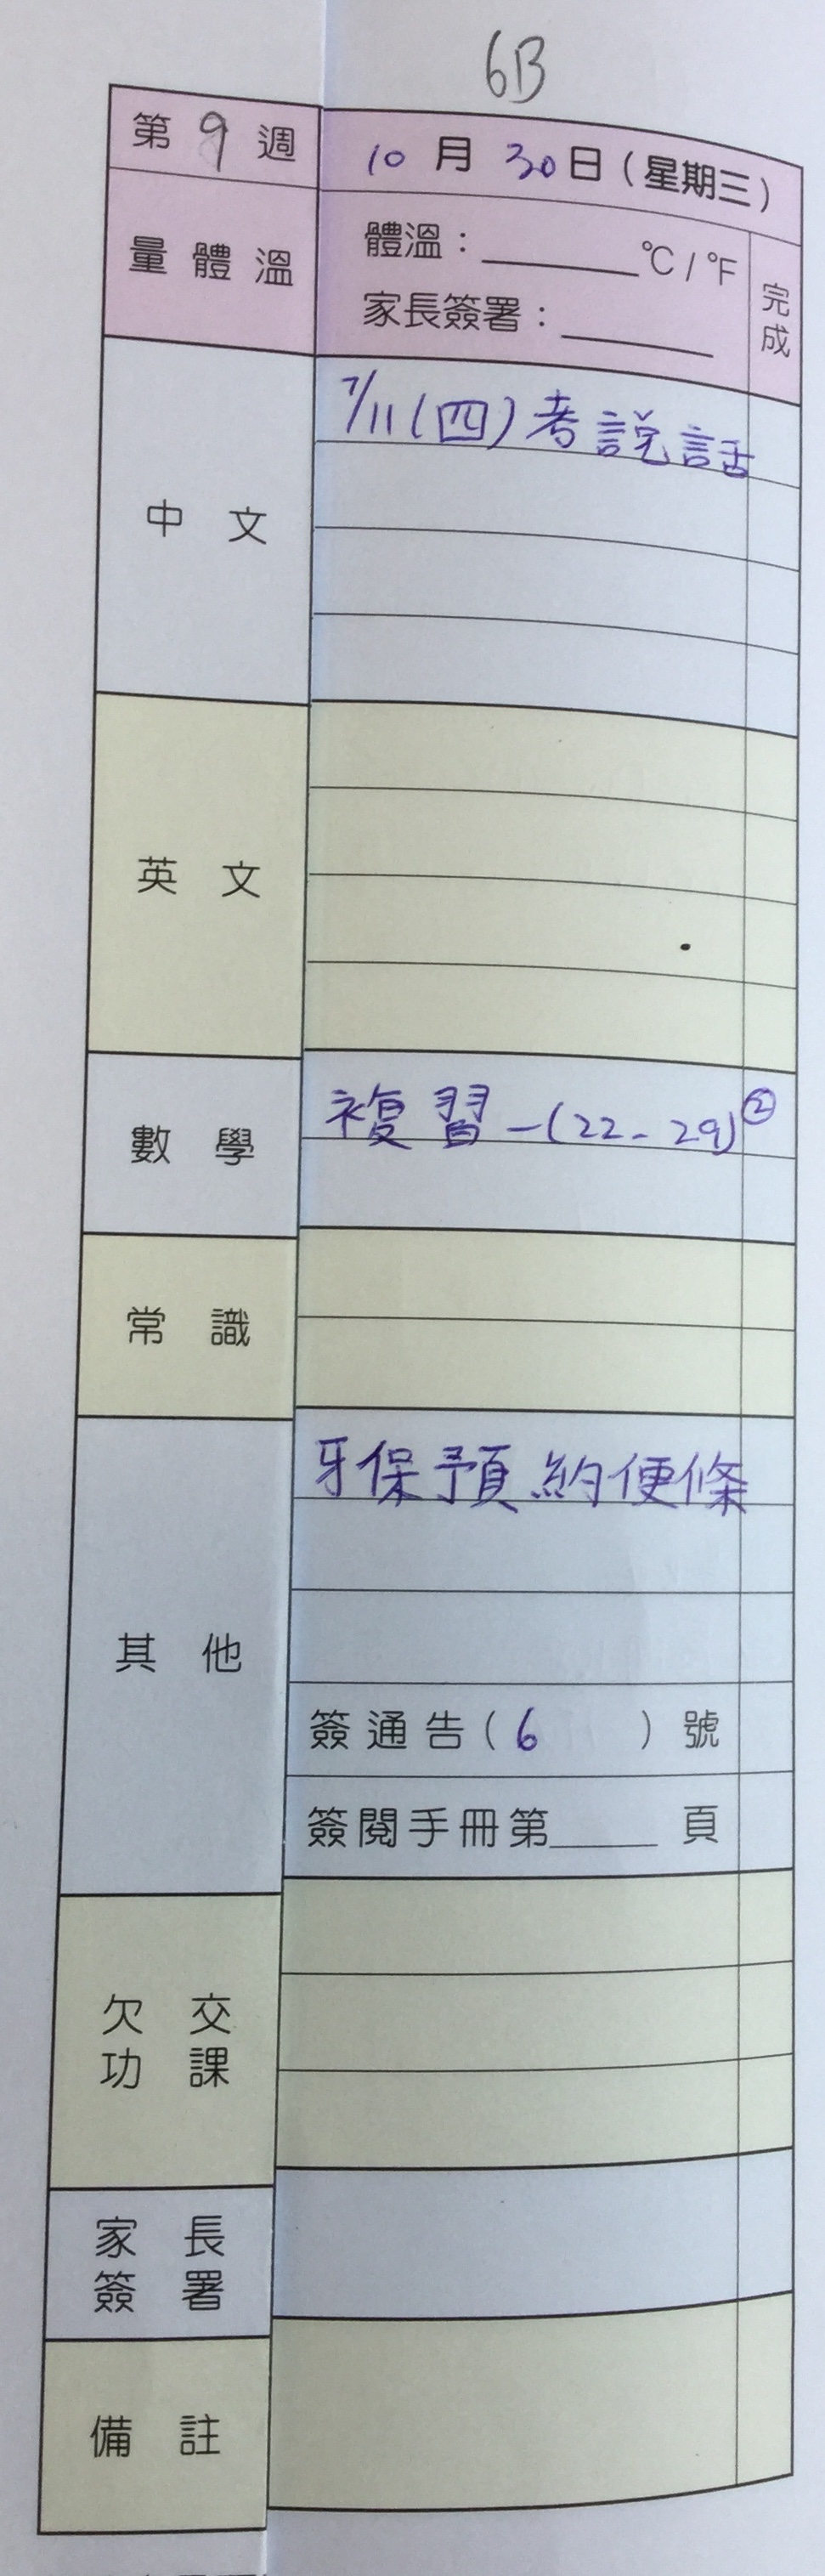 6B
第 9 週
10 月 30 日 (星期三)
量 體 溫
體溫：______℃ / ℉
家長簽署：______
完成
中 文
7/11(四)考説話
英 文
數 學
複習一(22-29)②
常 識
其 他
牙保預約便條
簽通告( 6 ) 號
簽閱手冊第_____ 頁
欠 交
功 課
家 長
簽 署
備 註